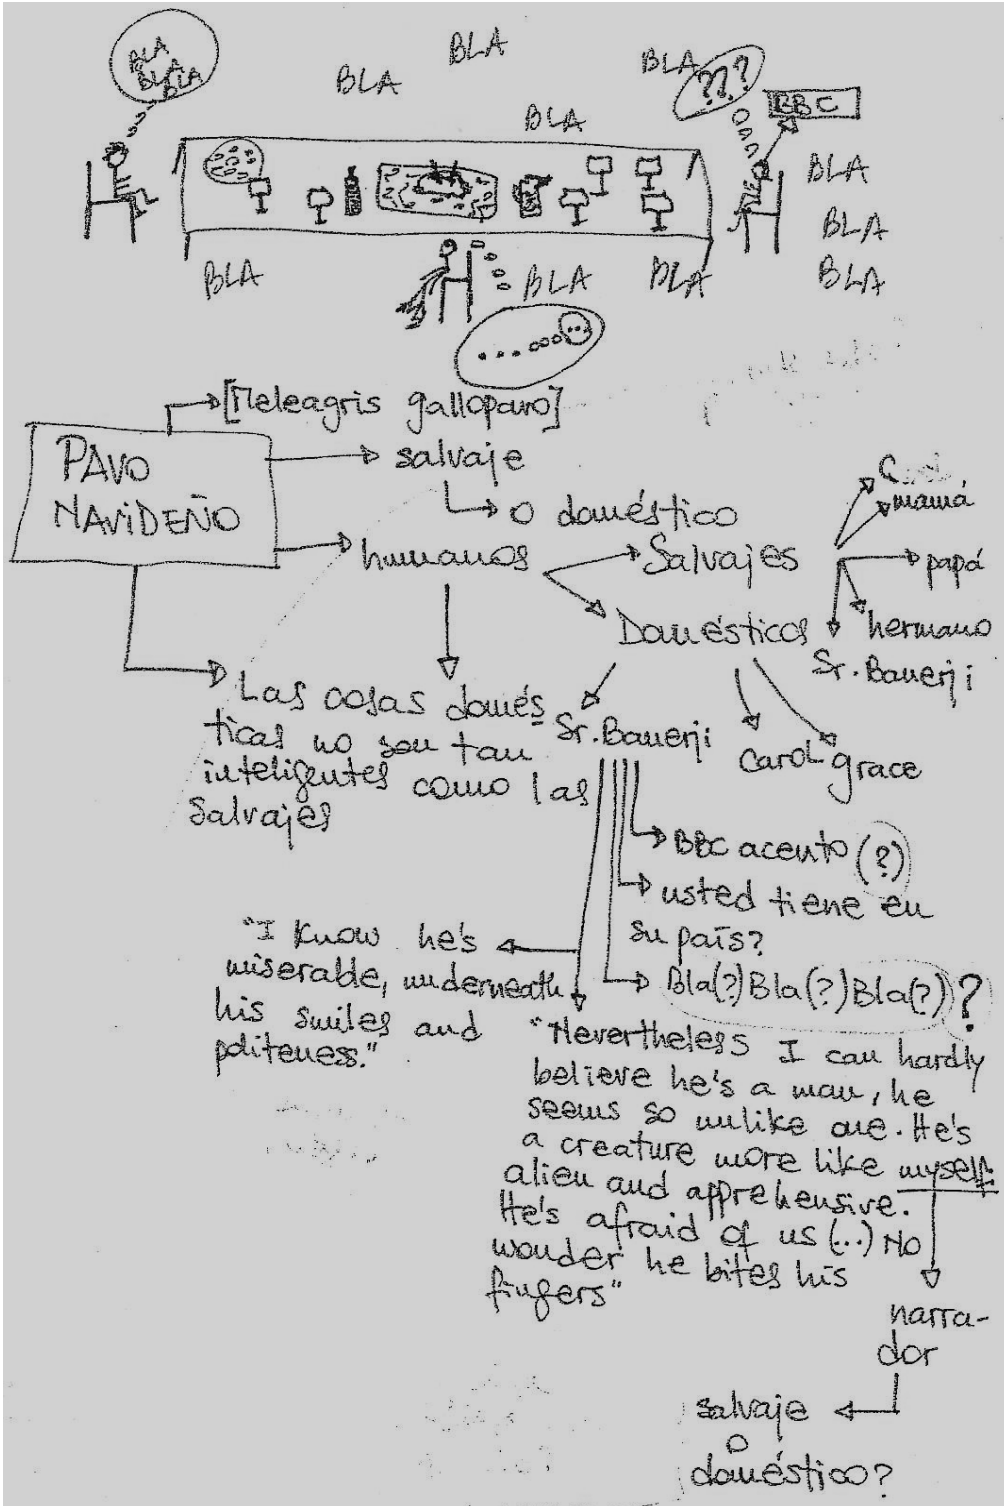 BLA
BLA
BLA
BLA
BLA
BLA
BLA
???
BBC
BLA
BLA
BLA
BLA
BLA
BLA
BLA
[Meleagris gallopavo]
PAVO
NAVIDEÑO
salvaje
o doméstico
humanos
Salvajes
Domésticos
mamá
papá
hermano
Sr. Banerji
Las cosas domés
ticas no son tan
inteligentes como las
salvajes
Sr. Banerji
Carol
grace
BBC acento (?)
usted tiene en
su país?
Bla(?)Bla(?)Bla(?)?
"I know he's
miserable, underneath
his smiles and
politeness."
"Nevertheless I can hardly
believe he's a man, he
seems so unlike one. He's
a creature more like myself:
alien and apprehensive.
He's afraid of us (...) No
wonder he bites his
fingers"
narra-
dor
salvaje
o
doméstico?